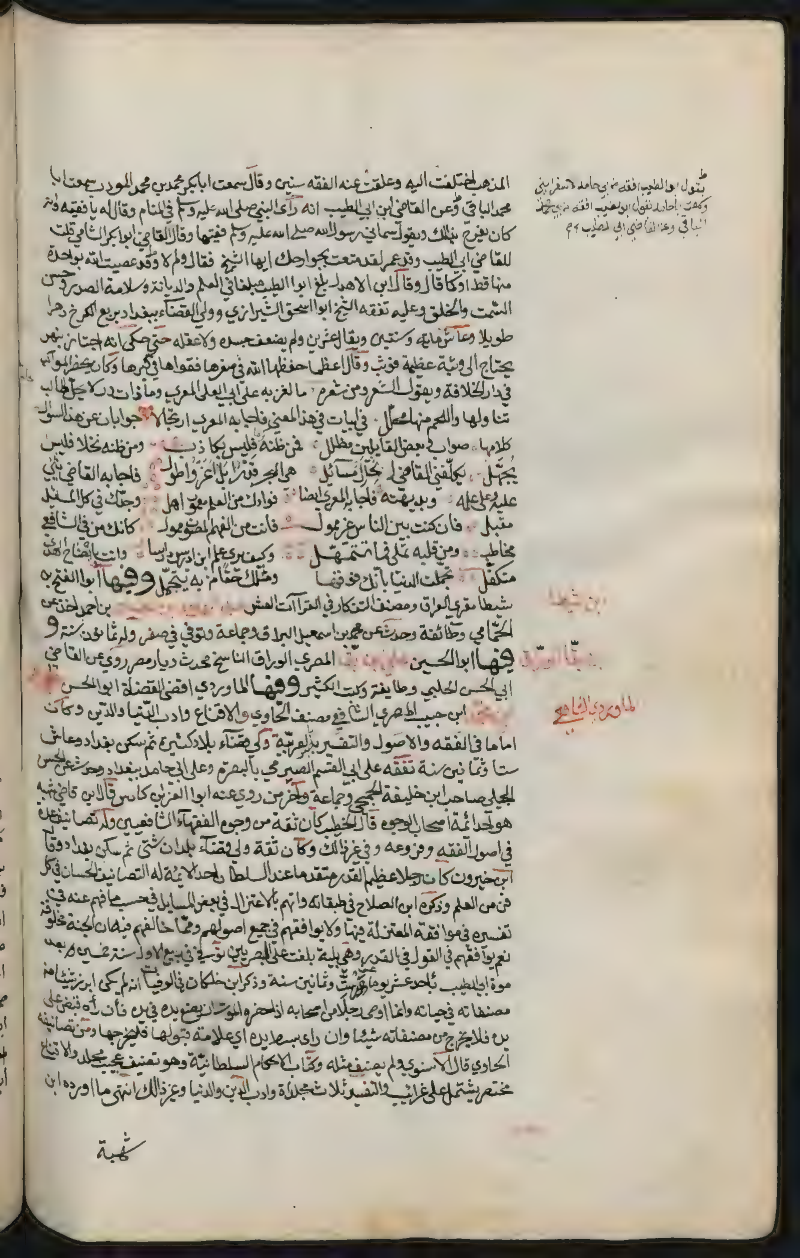 المذهب اختلفت اليه وعلقت عنه الفقه سنين وقال سمعت ابابكر محمد بن محمد المودب سمعت ابا
محمد الباقي وعن القاضي ابن ابي الطيب انه رأى النبي صلى الله عليه وسلم في المنام وقال له يا فقيه وانه
كان يفرح بذلك ويقول سماني رسول الله صلى الله عليه وسلم فقيها وقال القاضي ابو بكر الشامي قلت
للقاضي ابي الطيب وقد عمر لقد متعت بجوارحك ايها الشيخ فقال ولم لا وقد عصيت الله بواحدة
منها قط او كما قال وقال ابن الاهدل بلغ ابوا الطيب مبلغا في العلم والديانة وسلامة الصدر وحسن
السمت والخلق وعليه تفقه الشيخ ابوا اسحق الشيرازي وولي القضاء ببغداد بربع الكرخ دهرا
طويلا وعاش مايه وسنتين ويقال عشرين ولم يضعف جسده ولا عقله حتى حكي انه اجتاز بنهر
يحتاج الى وثبة عظيمة فوثب وقال اعظما حفظها الله في صغرها فقواها في كبرها وكان يحضر المواكب
في دار الخلافة ويقول الشعر ومن شعره ما لغز به على ابي العلى المعري وما ذات در لا يحل لحالب
تناولها واللحم منها محلل في ابيات في هذا المعنى فاجابه المعري ارتجالا جوابان عن هذا السوال
كلاهما صواب وبعض القايلين مضلل فمن ظنه فليس بكاذب ومن ظنه نخلا فليس
يجهل يكلفني القاضي مسائل هي البحر قدرا بل اعز واطول فاجابه القاضي يثني
عليه وعلى علمه وبديهته فاجابه المعري ايضا فوادك من العلم اهل وجدك في كل
مقبل فان كنت بين الناس غير ممول فانت من الفهم المصون ممول كانك من في الشافعي
مخاطب ومن قلبه تملى فما تتمهل وكيف يرى علم ابن ادريس دارسا وانت بايضاح الهدى
متكفل تجملت الدنيا بانك فوقها ومثلك حقا من به يتجمل وفيها ابوا الفتح بن
شيطا مقري العراق ومصنف التذكار في القراآت العشر بن احمد اخذ عن
الحمامي وطائفة وحدث عن محمد بن اسمعيل الوراق وجماعة وتوفي في صفر وله ثمانون سنة و
فيها ابوا الحسين علي بن بقا المصري الوراق الناسخ محدث ديار مصر روى عن القاضي
ابي الحسن الحلبي وطايفة وكتب الكثير وفيها الماوردي اقضى القضاة ابوا الحسن
ابن حبيب البصري الشافعي مصنف الحاوي والاقناع وادب الدنيا والدين وكان
اماما في الفقه والاصول والتفسير بالعربية ولي قضاء بلاد كثيرة ثم سكن بغداد وعاش
ستا وثمانين سنة تفقه على ابي القسم الصيمري بالبصرة وعلى ابي حامد ببغداد وحدث عن الحسن
الجبلي صاحب ابن خليفة الجمحي وجماعة واخر من روى عنه ابوا العز بن كادس قال ابن قاضي شهبة
هو احد ائمة اصحاب الوجوه قال الخطيب كان ثقة من وجوه الفقهاء الشافعيين وله تصانيف عدة
في اصول الفقه وفروعه وفي غير ذلك وكان ثقة ولي قضاء بلدان شتى ثم سكن بغداد وقال
ابن خيرون كان رجلا عظيم القدر متقدما عند السلطان احد الائمة له التصانيف الحسان في كل
فن من العلم وذكره ابن الصلاح في طبقاته واتهم بالاعتزال في بعض المسايل فحسب ما فهم عنه في
تفسيره في موافقة المعتزلة فيها ولا يوافقهم في جميع اصولهم ومما خالفهم فيه ان الجنة مخلوقة
نعم يوافقهم في القول في القدر وهي بلية بلغت على البصريين توفي في ربيع الاول سنة خمسين بعد
موت ابي الطيب باحد عشر يوما عن ست وثمانين سنة وذكر ابن خلكان في الوفيات انه لم يكن ابرز شيا من
مصنفاته في حياته وانما اوصى رجلا من اصحابه اذا حضره الموت ان يضع يده في يده فان رآه قبض على
يده فلا يخرج من مصنفاته شيئا وان راى بسط يده اي علامة قبولها فليخرجها ومن تصانيفه
الحاوي قال الاسنوي ولم يصنف مثله وكتاب الاحكام السلطانية وهو تصنيف عجيب مجلد والاقناع
مختصر يشتمل على غرائب والتفسير ثلاث مجلدات وادب الدين والدنيا وغير ذلك انتهى ما اورده ابن
شهبة
يقول ابو الطيب افقه من ابي حامد الاسفرايني
وسمعت ابا حامد يقول ابو الطيب افقه من ابي محمد
الباقي وعن القاضي ابي الطيب
ابن شيطا
بقا الوراق
الماوردي الشافعي